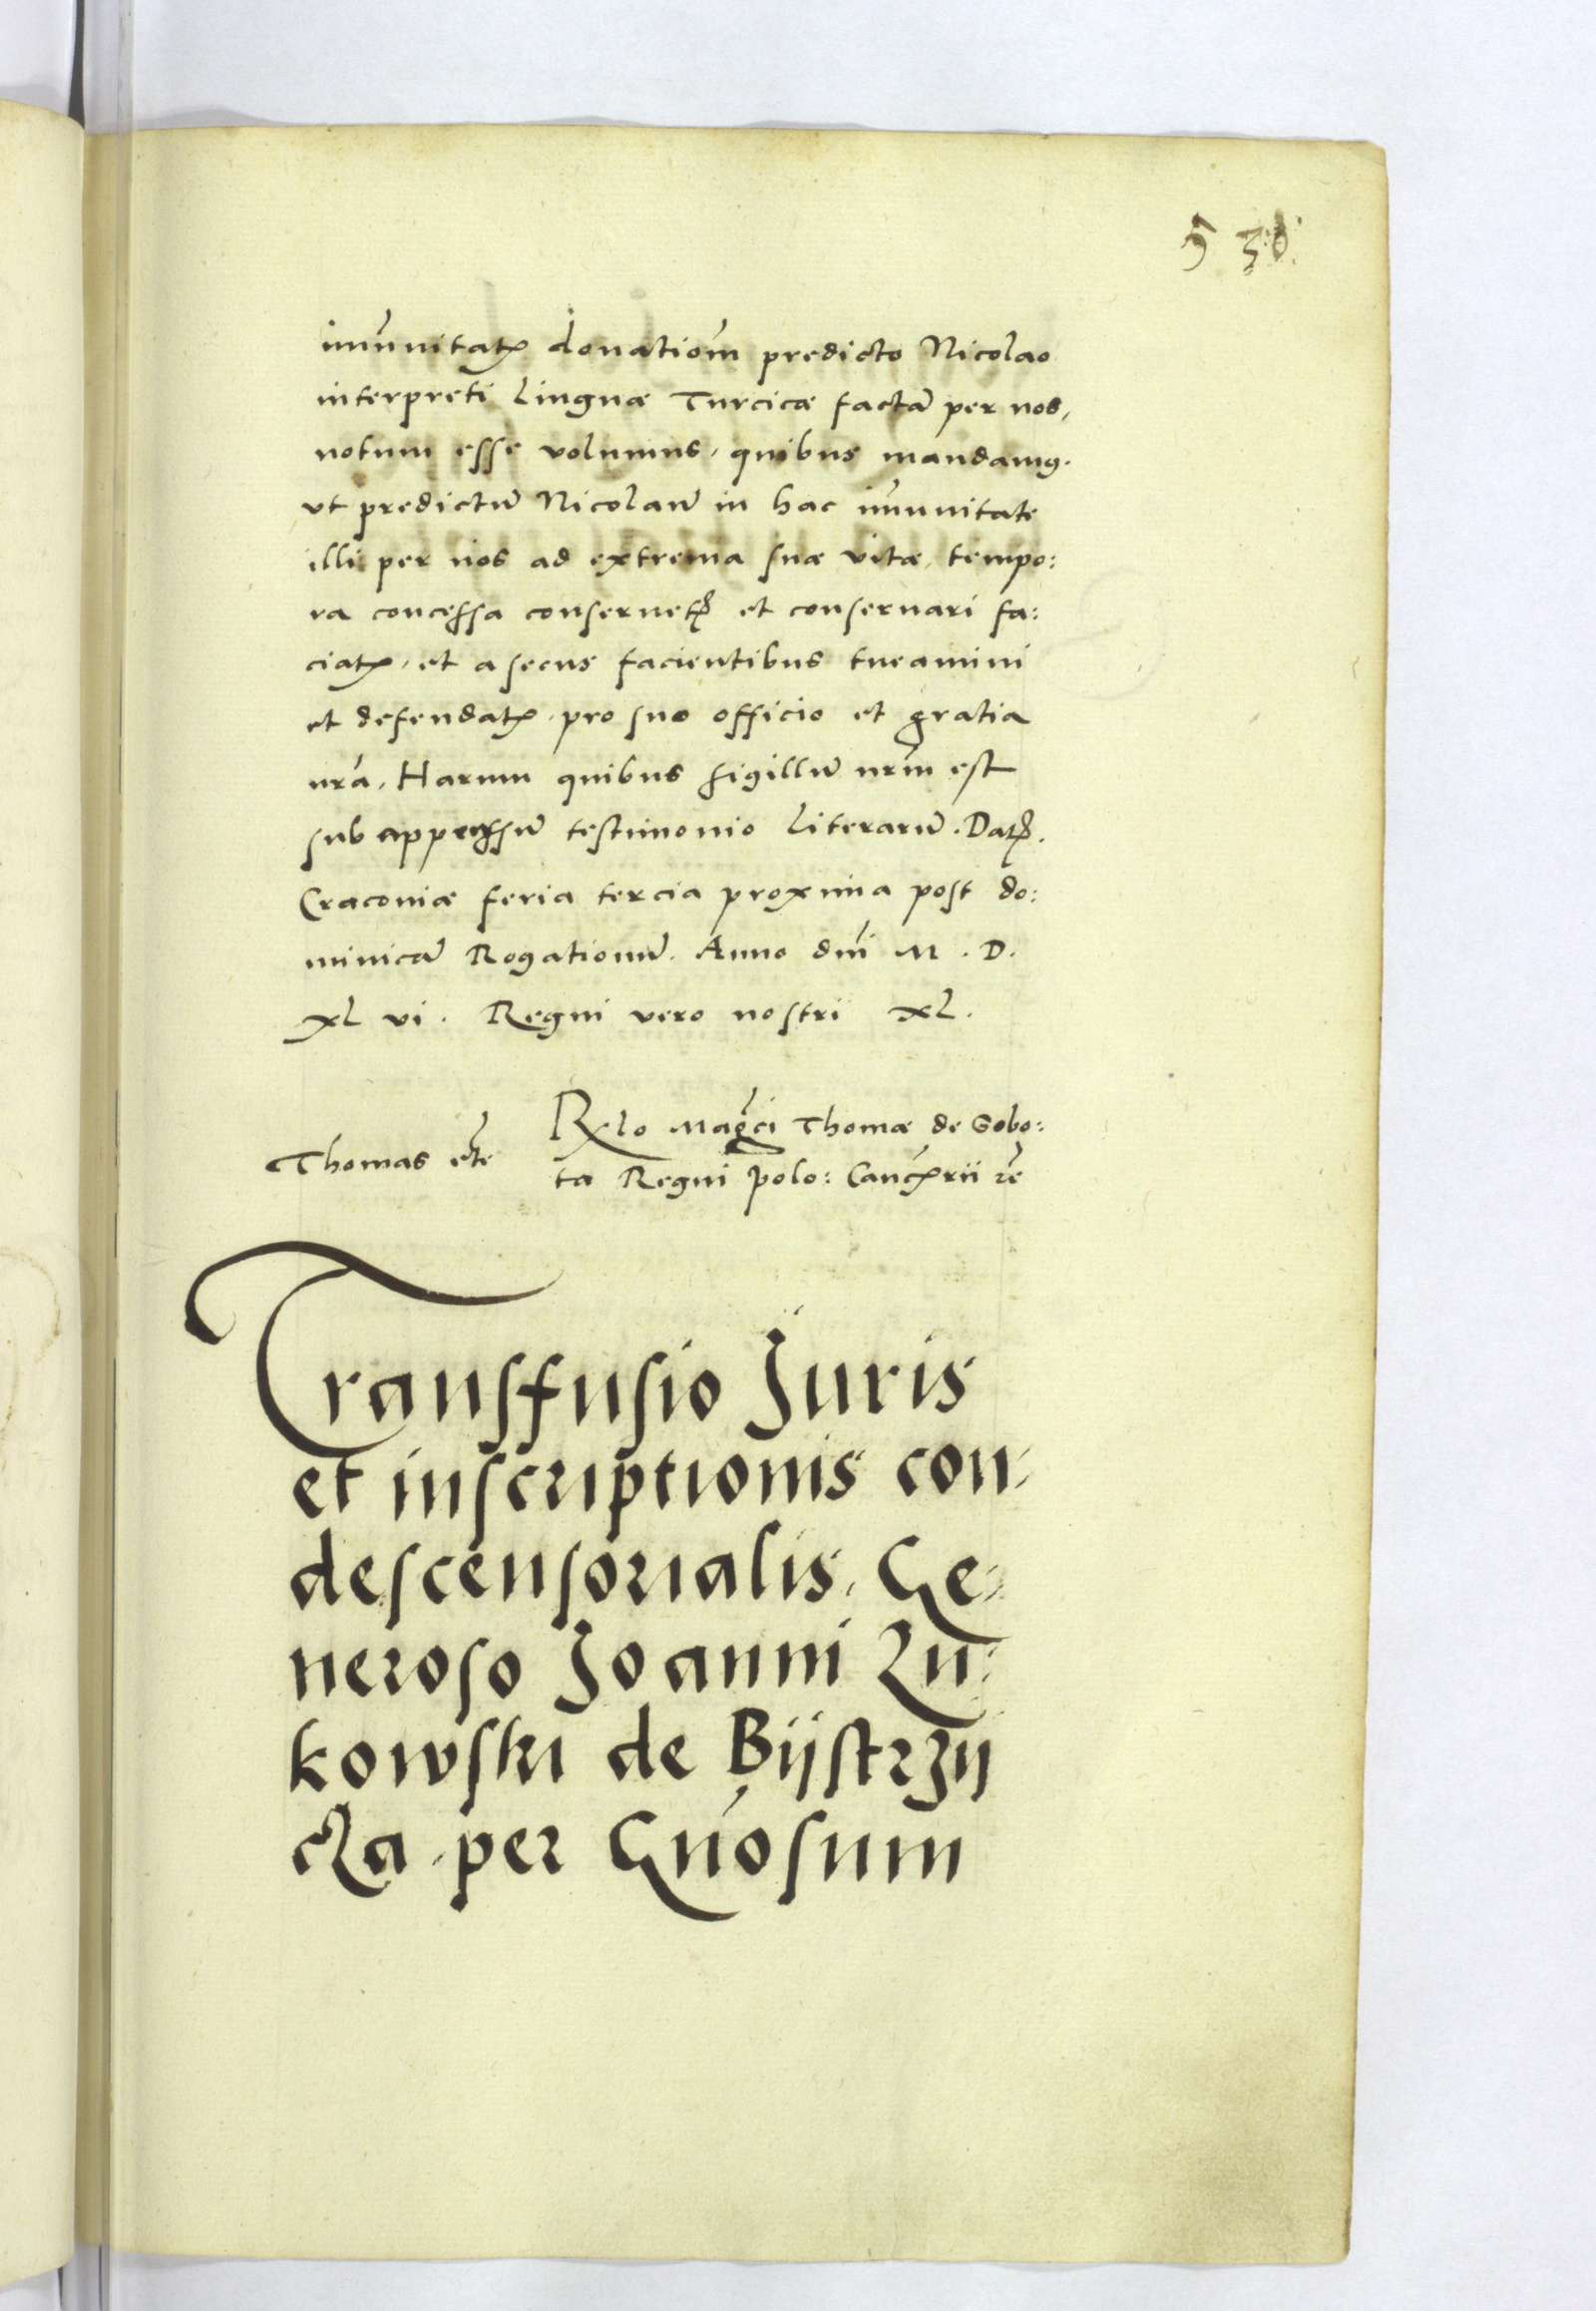 530.
im̃unitatꝭ donatiom̃ predicto Nicolao
interpreti Linguæ Turcicæ factã per nos,
notum esse volumus, quibus mandamꝯ.
vt predictũ Nicolaũ in hac im̃unitate
illi per nos ad extrema suæ vitæ tempo:
ra concessa conseruetꝭ et conseruari fa:
ciatꝭ, et a secus facientibus tueamini
et defendatꝭ, pro suo officio et gratia
nrã, Harum quibus sigillũ nrm̃ est
sub appenssũ testimonio Literarũ. Datꝭ.
Cracouiæ feria tercia proxima post do:
minicã Rogationũ. Anno dnĩ M. D.
XL vi. Regni vero nostri XL.
Rlo Magci Thomæ de Sobo:
Thomas etc̃
ta Regni Polo: Cancꝭrii rẽ
Transfusio Juris
et inscriptionis con:
descensorialis, Ge:
neroso Joanni Zu:
kowski de Bijstrzij
cza, per Gnosum